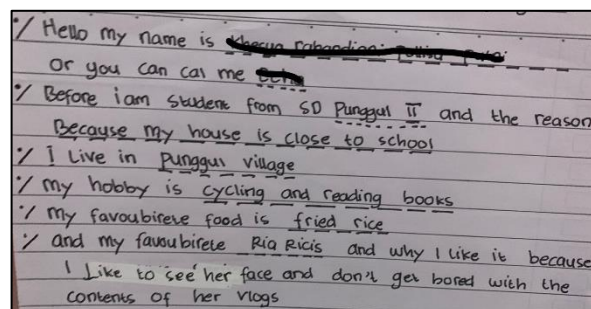 ·/ Hello my name is
Or you can cal me
·/ Before i am student from SD Punggul II and the reason
Because my house is close to school
·/ I Live in Punggul village
·/ my hobby is cycling and reading books
·/ my favoubirete food is fried rice
·/ and my favoubirete Ria Ricis and why I like it because
I Like to see her face and don't get bored with the
contents of her vlogs